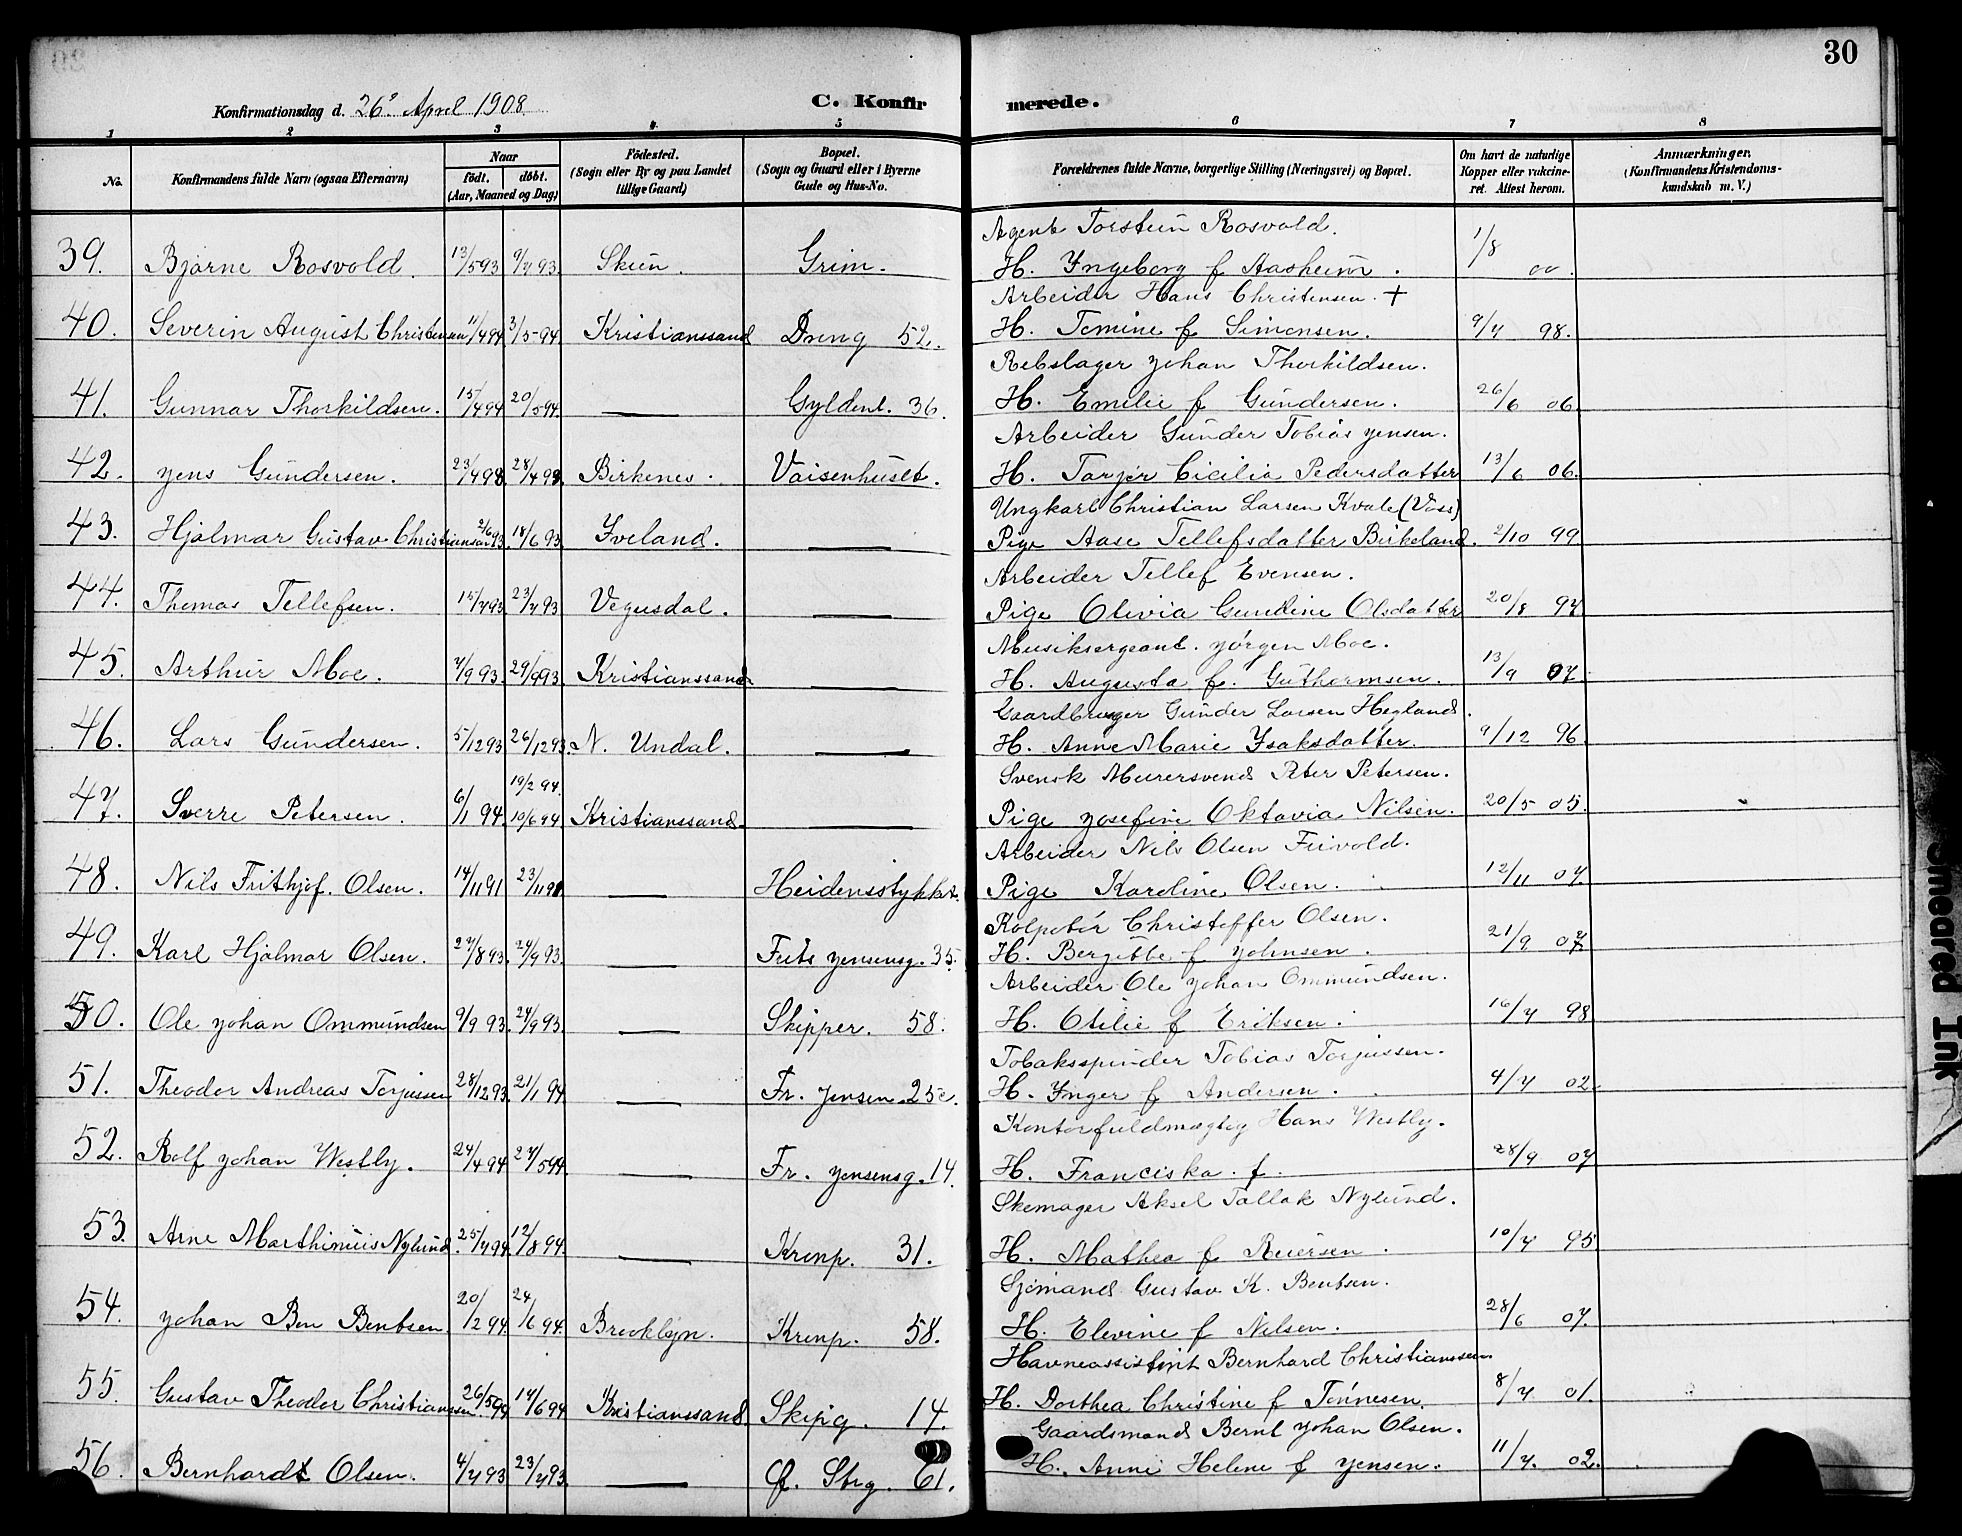 30
Konfirmationsdag d. 26de April 1908
C. Konfir merede.
1 2 3 4 5 6 7 8
No.
Konfirmandens fulde Navn (ogsaa Efternavn)
Naar
födt. döbt.
(Aar, Maaned og Dag)
Födested.
(Sogn eller By og paa Landet
tillige Gaard)
Bopæl.
(Sogn og Gaard eller i Byerne
Gade og Hus-No.
Forældrenes fulde Navne, borgerlige Stilling (Næringsvei) og Bopæl.
Om havt de naturlige
Kopper eller vakcine-
ret. Attest herom.
Anmærkninger.
(Konfirmandens Kristendoms-
kundskab m. V.)
Agent Torstein Rosvold.
39. Bjarne Rosvold. 13/5 93 9/7 93. Skien. Grim. H. Yngeborg f Aasheim. 1/8 00.
Arbeider Hans Christensen. +
40. Severin August Christensen 11/4 94 3/5 94 Kristianssand Dronng 52. H. Tomine f Simonsen. 9/7 98.
Rebslager Johan Thorkildsen.
41. Gunnar Thorkildsen. 15/4 94 20/5 94. — Gyldenl. 36. H. Emilie f Gundersen. 26/6 06.
Arbeider Gunder Tobias Jensen.
42. Jens Gundersen. 23/4 98. 28/4 98. Birkenes. Vaisenhuset. H. Tarjer Cicilia Pedersdatter 13/6 06.
Ungkarl Christian Larsen Kvale (Voss)
43. Hjalmar Gustav Christiansen 2/6 93. 18/6 93. Iveland. — Pige Aase Tellefsdatter Birkeland. 2/10 99
Arbeider Tellef Evensen.
44. Thomas Tellefsen. 15/7 93. 23/7 93 Vegusdal. — Pige Olivia Gundine Olsdatter 20/8 97
Musiksergeant. Jørgen Moe.
45. Arthur Moe. 7/9 93. 29/9 93 Kristianssand. — H. Augusta f. Guthormsen. 13/9 07.
Gaardbruger Gunder Larsen Hegland.
46. Lars Gundersen. 5/12 93 26/12 93. N. Undal. — H. Anne Marie Ysaksdatter. 9/12 96.
Svensk Murersvend Peter Petersen.
47. Sverre Petersen. 6/1 94. 19/2 94. 10/6 94 Kristianssand. — Pige Josefine Oktavia Nilsen. 20/5 05.
Arbeider Nils Olsen Feivold.
48. Nils Frithjof. Olsen. 14/11 91 23/11 91 — Heidensstykket. Pige Karoline Olsen. 12/11 07.
Kolpotør Christoffer Olsen.
49. Karl Hjalmar Olsen. 27/8 93. 24/9 93. — Futs Jensensg. 35. H. Bergitte f Johnsen. 21/9 07
Arbeider Ole Johan Ommundsen.
50. Ole Johan Ommundsen 9/9 93. 24/9 93. — Skipper. 58. H. Otilie f Eriksen. 16/7 98
Tobaksspinder Tobias Torjussen.
51. Theodor Andreas Torjussen 28/12 93. 21/1 94. — Fr. Jensen. 25c. H. Ynger f Andersen. 4/7 02.
Kontorfuldmægtig Hans Westly.
52. Rolf Johan Westly. 24/4 94 27/5 94. — Fr. Jensensg. 14. H. Franciska. f. 28/9 07
Skomager Aksel Tallak Nylund.
53. Arne Marthinius Nylund. 25/7 94. 12/8 94. — Kronp. 31. H. Mathea f Reiersen. 10/7 95
Sjømand Gustav K. Bentsen.
54. Johan Ben Bentsen 20/2 94. 24/6 94. Brooklyn. Kronp. 58. H. Elevine f Nilsen. 28/6 07.
Havneassistent Bernhard Christianssen.
55. Gustav Theodor Christianssen. 26/5 94 17/6 94 Kristianssand. Skipg. 14. H. Dorthea Christine f Tønnesen. 8/7 01.
Gaardsmand Bernt Johan Olsen.
56. Bernhardt Olsen. 4/7 93 23/7 93. — Ø. Strg. 61. H. Anne Helene f Jensen. 11/7. 02.
Smeared Ink